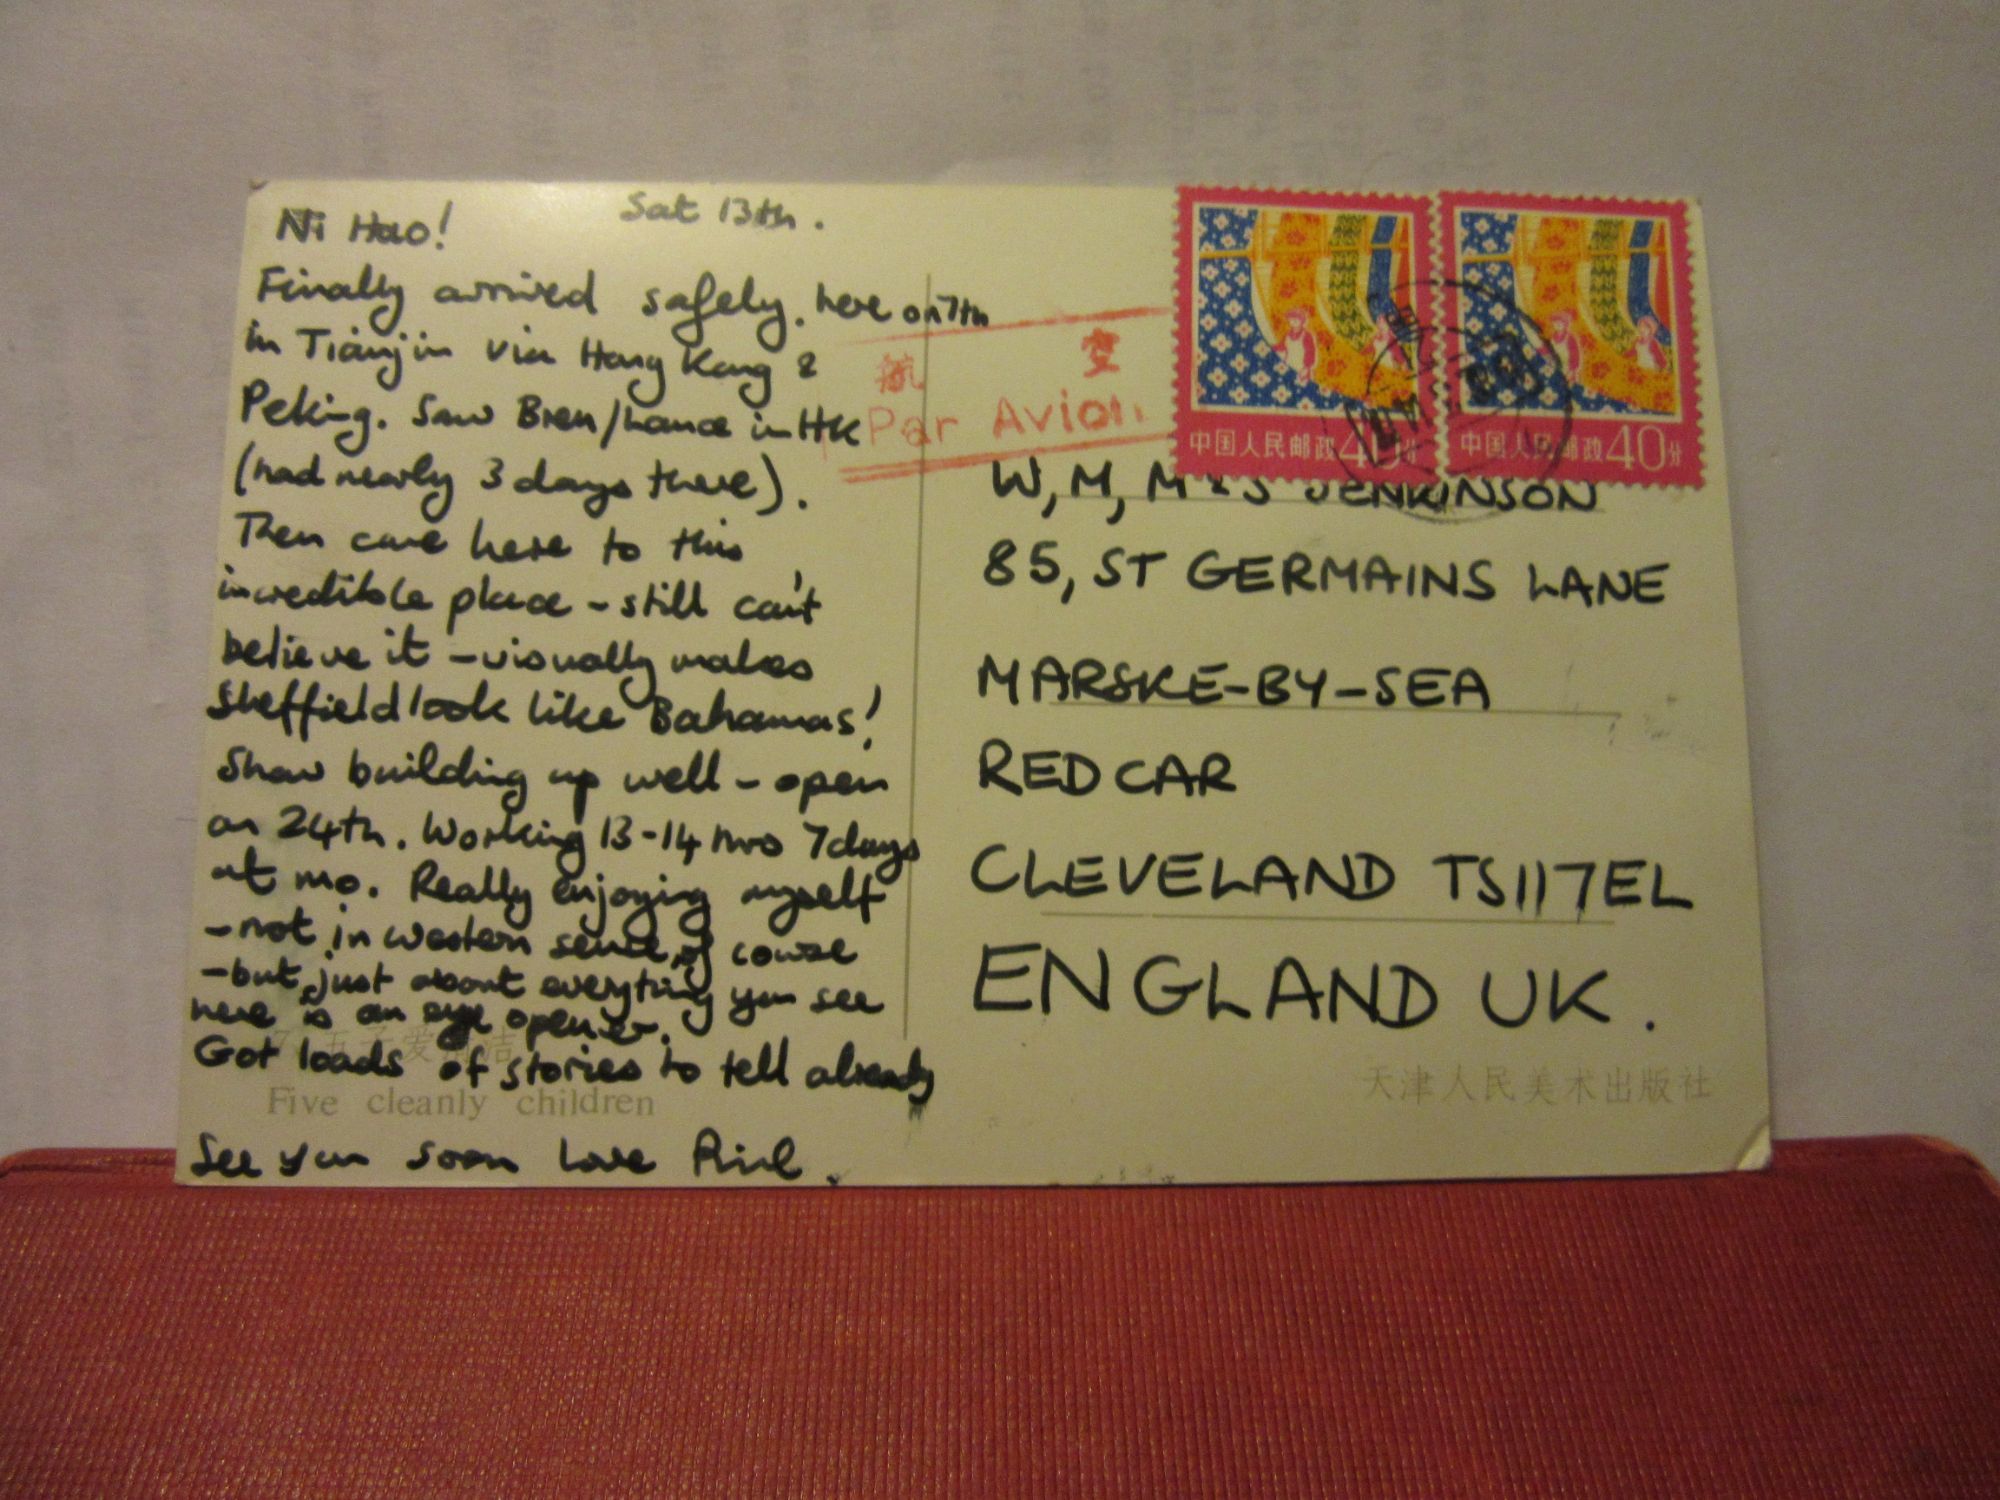 Sat 13th.
Ni Hao!
Finally arrived safely. here on 7th
in Tianjin via Hong Kong &
Peking. Saw Bren/Lance in HK
(had nearly 3 days there).
Then came here to this
incredible place - still can't
believe it - visually makes
Sheffield look like Bahamas!
Show building up well - open
on 24th. Working 13-14 hrs 7 days
at mo. Really enjoying myself
- not in western sense, of course
- but just about everything you see
here is an eye opener.
Got loads of stories to tell already
See you soon Love
五子爱清洁
Five cleanly children
航空
Par Avion
中国人民邮政 40分
中国人民邮政 40分
W, M, M & S JENKINSON
85, ST GERMAINS LANE
MARSKE-BY-SEA
REDCAR
CLEVELAND TS117EL
ENGLAND UK.
天津人民美术出版社